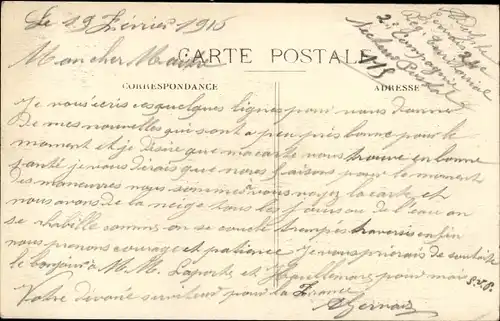 Le 19 Février 1915
Mon cher Maitre
CARTE POSTALE
CORRESPONDANCE
ADRESSE
Je vous écris ces quelques lignes pour vous donne
De mes nouvelles qui sont a peu près bonne pour le
moment et je désire que ma carte vous trouve en bonne
santé je vous dirais que nous faisons pour le moment
des maneuvres nous sommes vous voyez la carte et
nous avons de la neige tous les jours ou de l'eau on
se rhabille comme on se couche trempés traversés enfin
nous prenons courage et patience Je vous prierais de souhaité
le bonjour a M. M. Laporte et pour moi s.v.p.
Votre dévoué serviteur pour la France